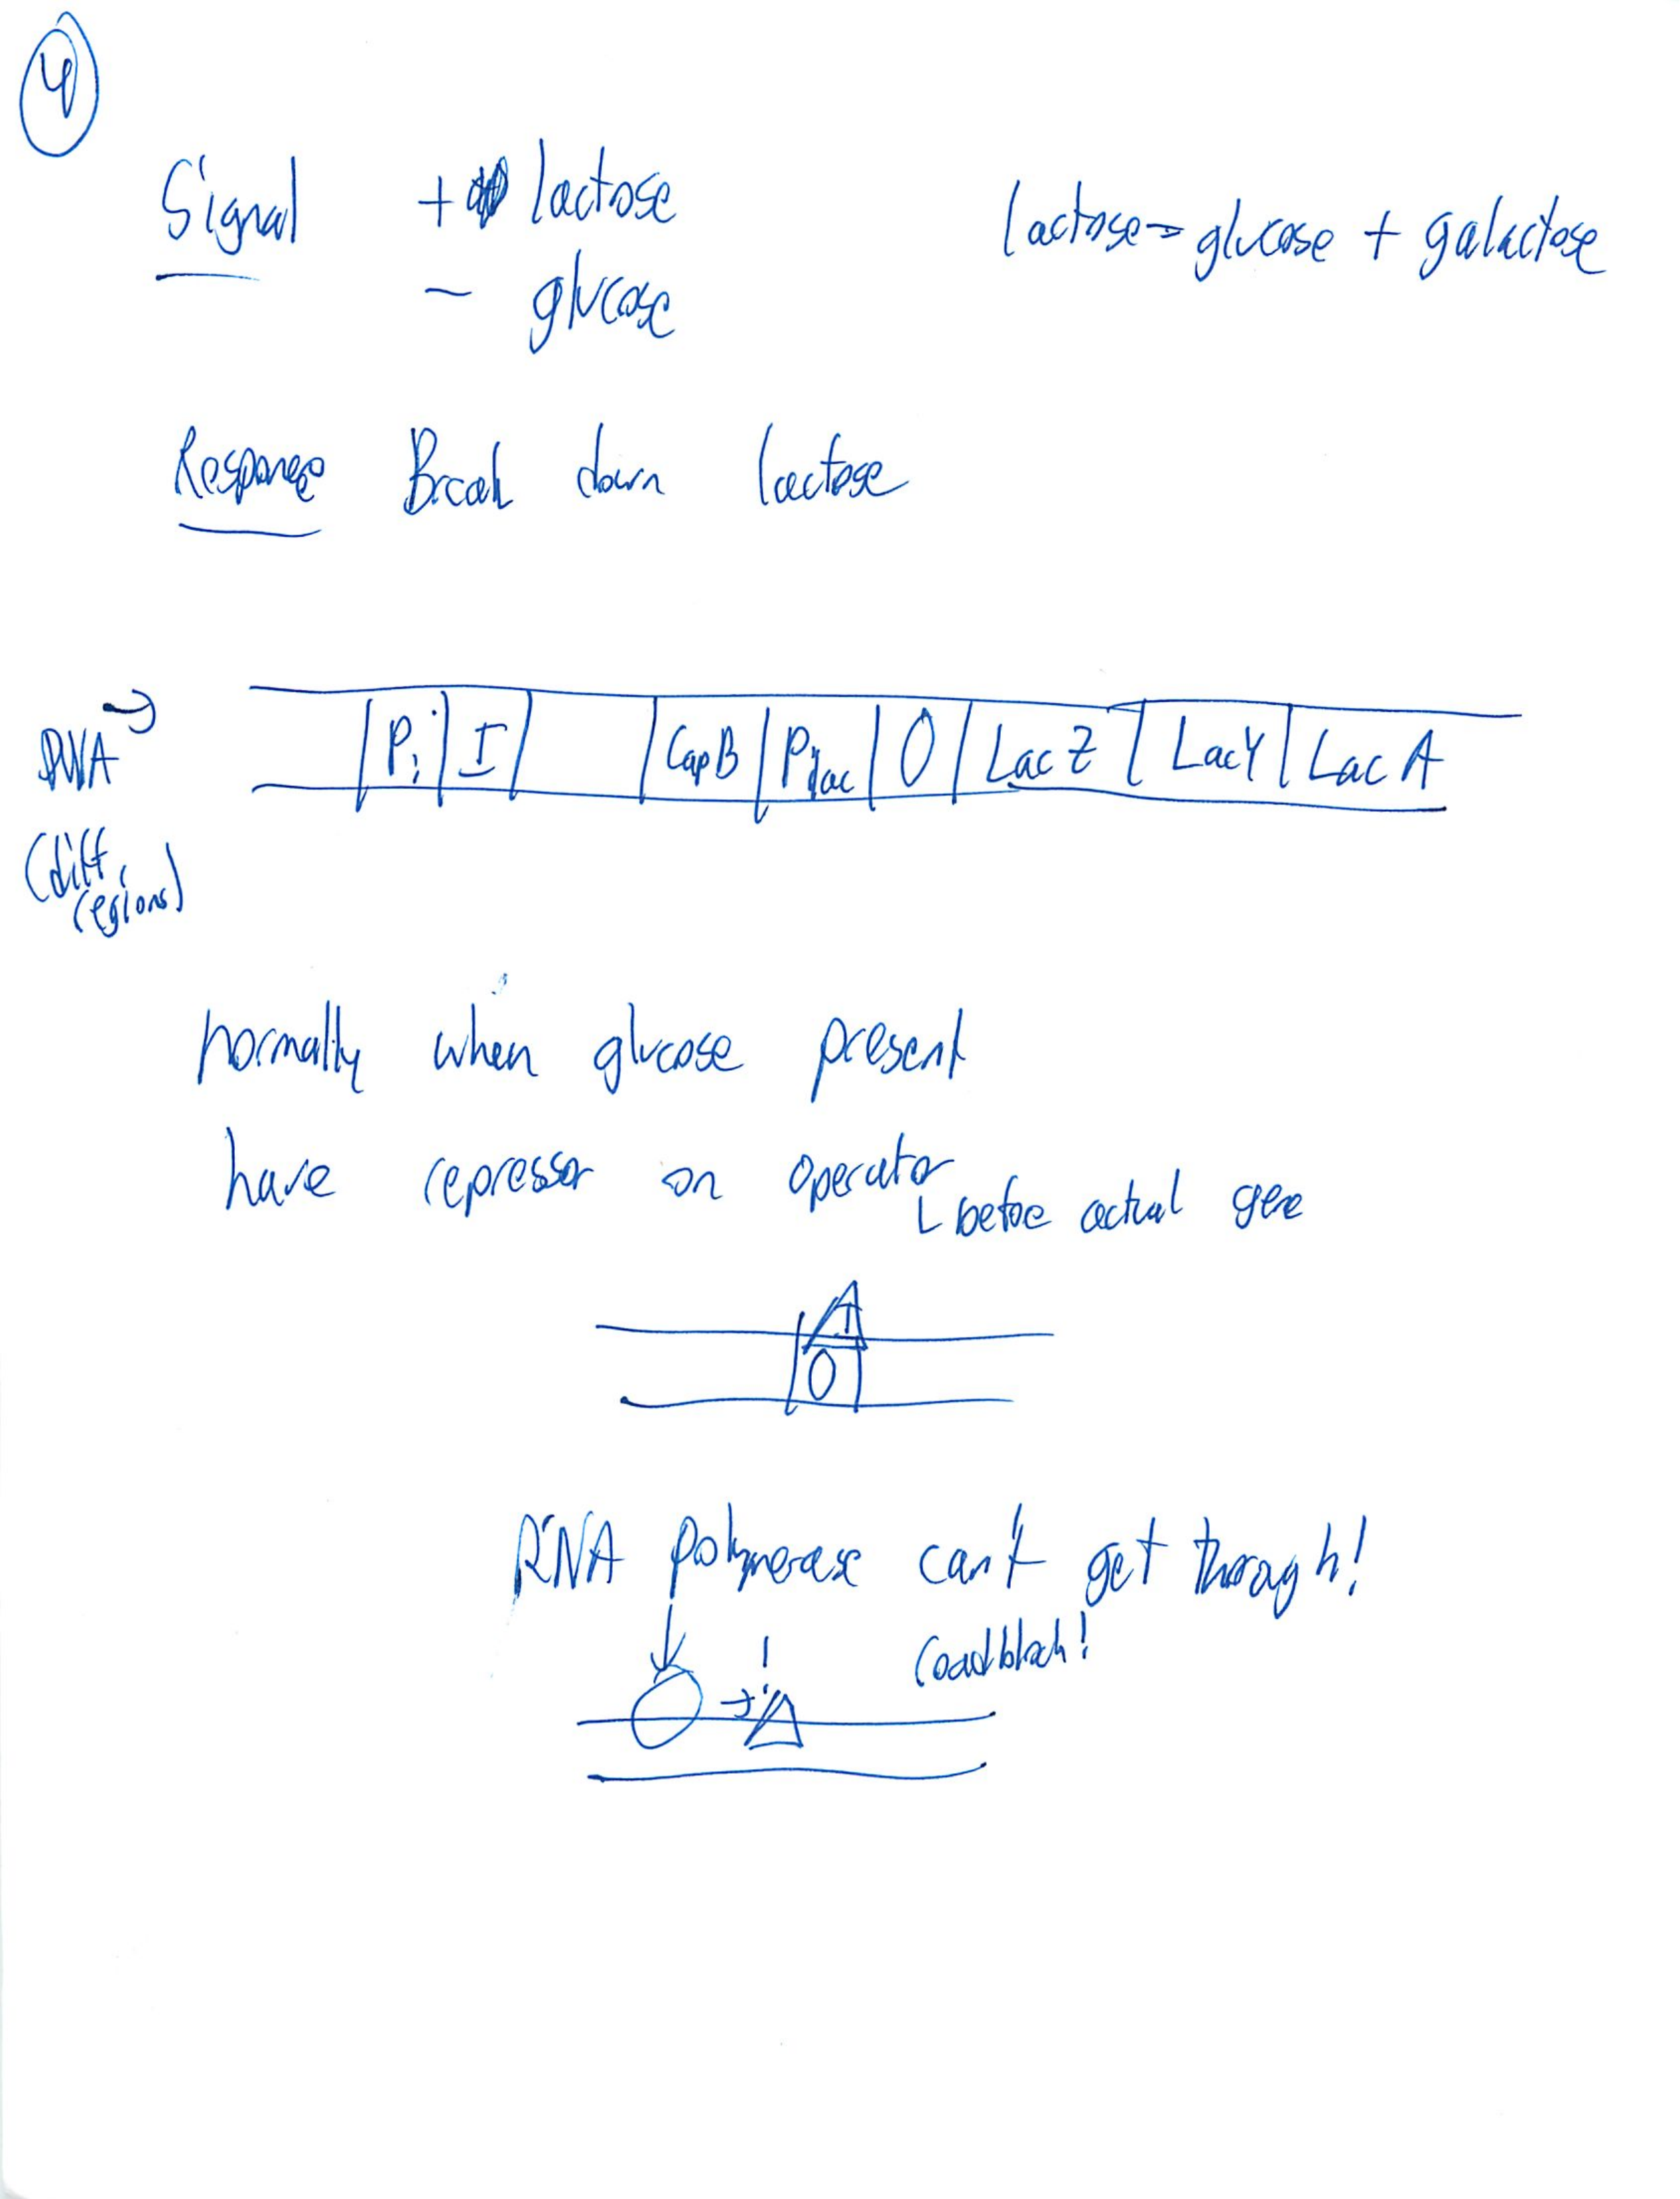 4
Signal + lactose lactose = glucose + galactose
- glucose
Response Break down lactose
DNA Pi I CapB Plac O LacZ LacY LacA
(diff.
regions)
normally when glucose present
have repressor on operator
before actual gene
I
O
RNA polymerase can't get through!
!
roadblock!